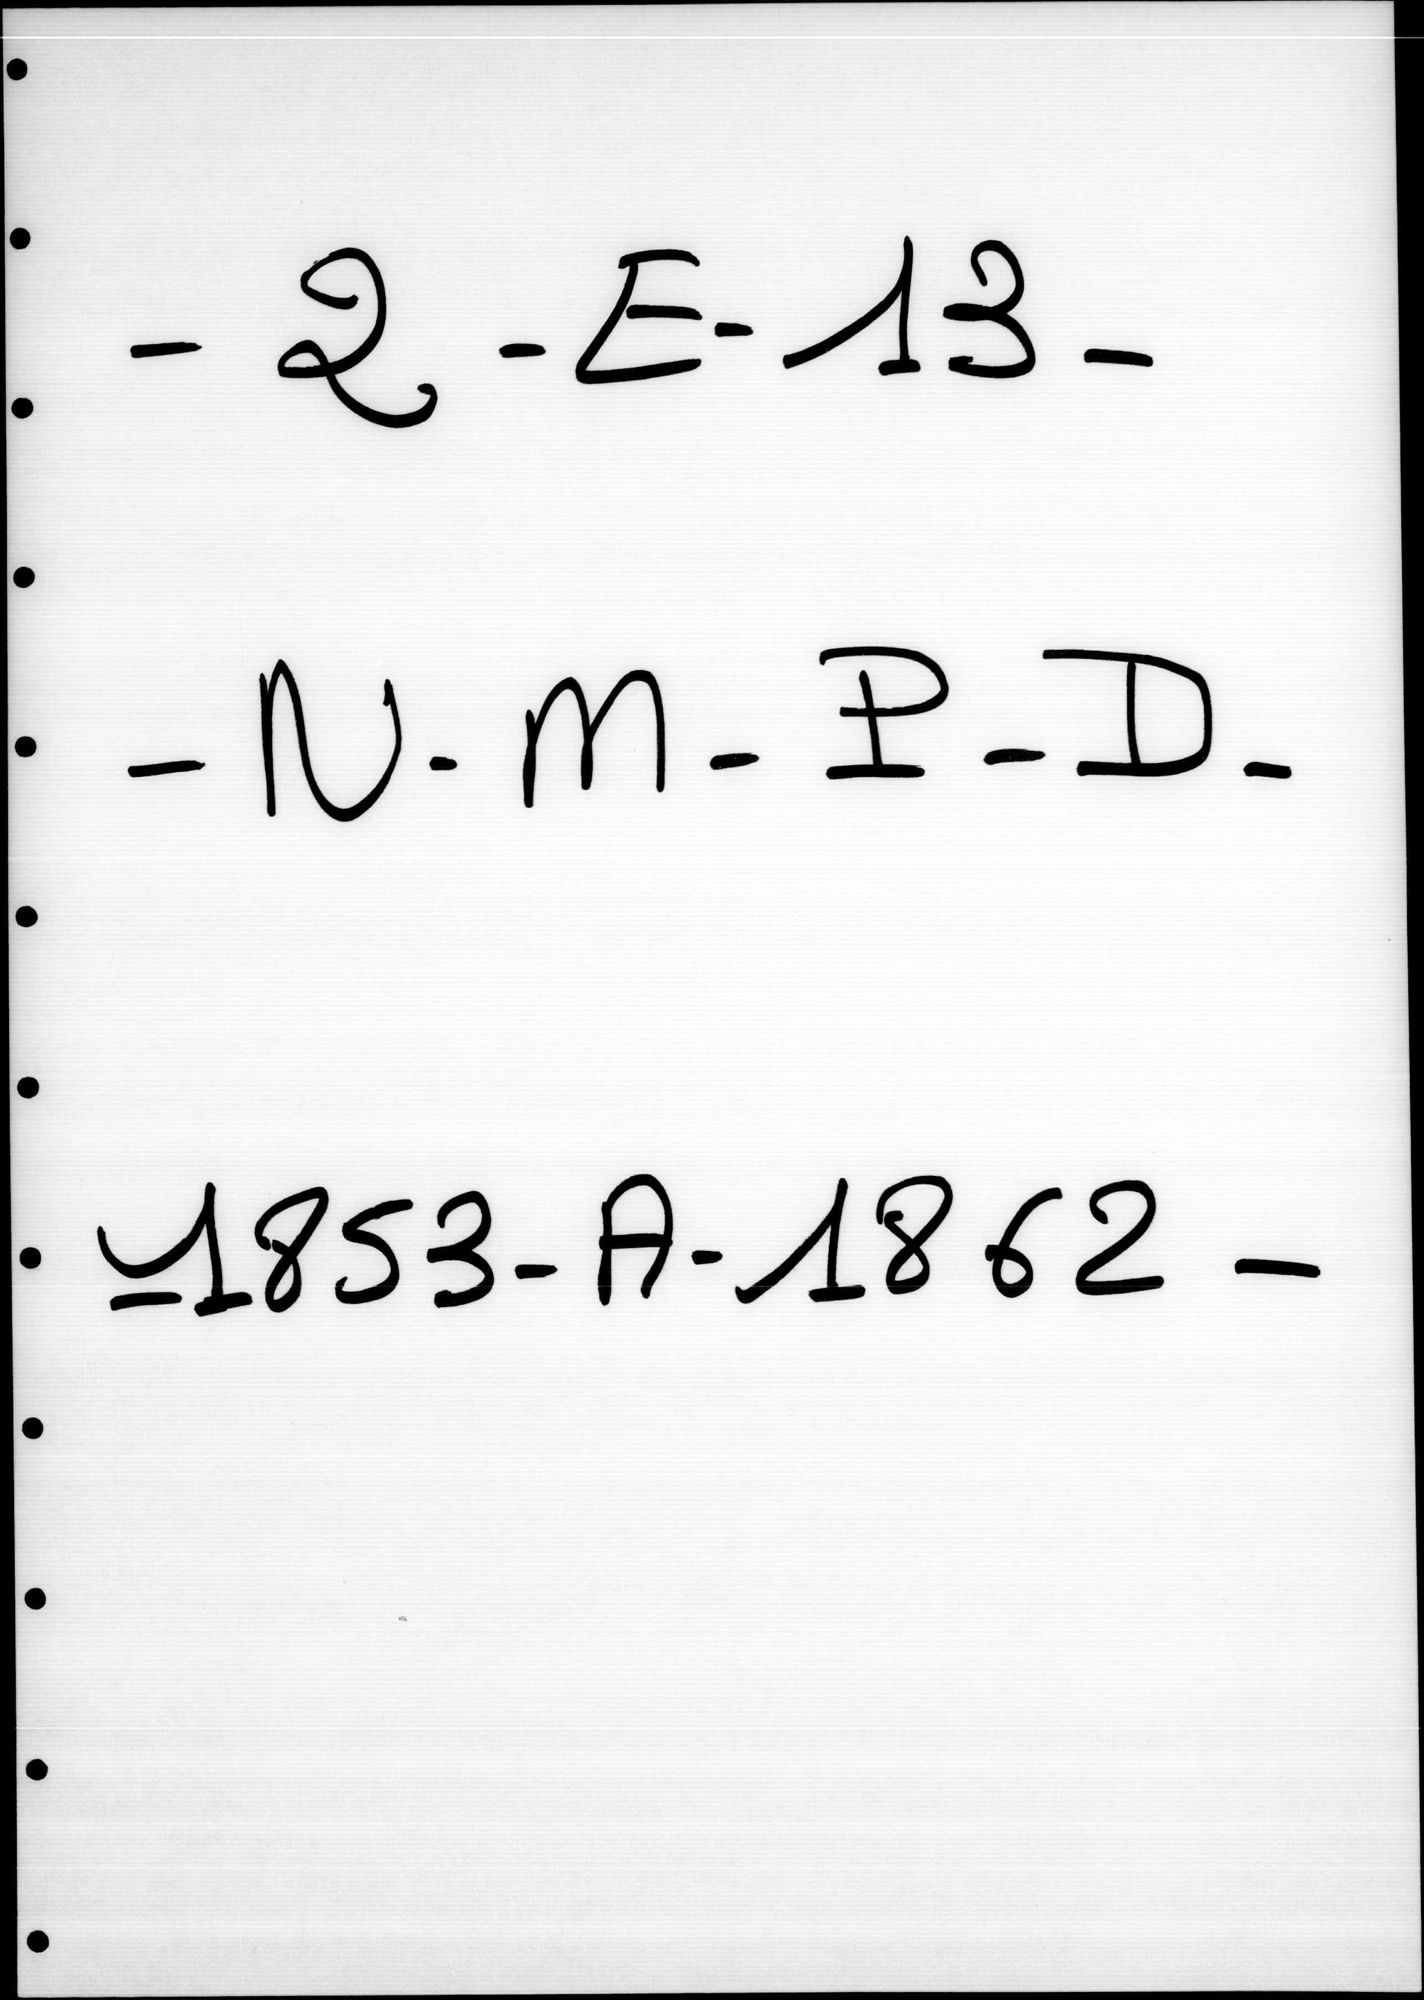 - 2 - E - 13 -
- N - M - P - D -
- 1853 - A - 1862 -